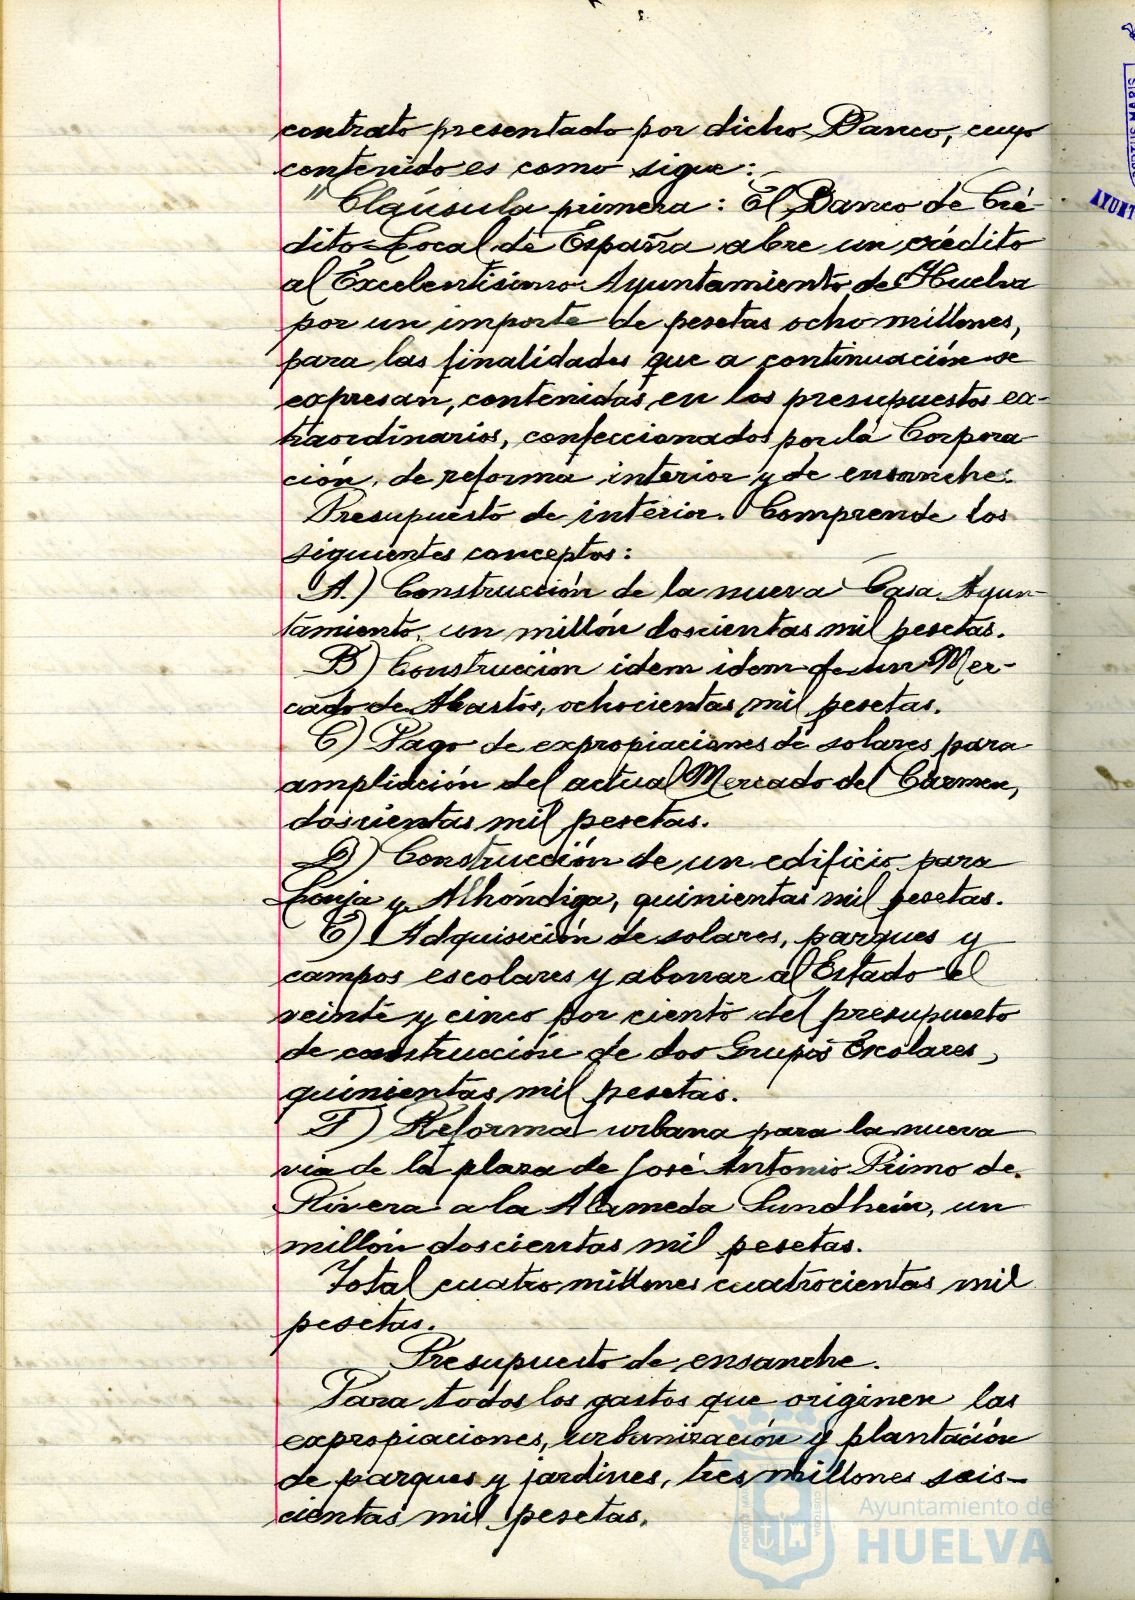 contrato presentado por dicho Banco, cuyo
contenido es como sigue:
"Claúsula primera: El Banco de Cré-
dito Local de España abre un crédito
al Excelentísimo Ayuntamiento de Huelva
por un importe de pesetas ocho millones,
para las finalidades que a continuación se
expresan, contenidas en los presupuestos ex-
traordinarios, confeccionados por la Corpora
ción, de reforma interior y de ensanche:
Presupuesto de interior. Comprende los
siguientes conceptos:
A) Construcción de la nueva Casa Ayun-
tamiento, un millón doscientas mil pesetas.
B) Construcción idem idem de un Mer-
cado de Abastos, ochocientas mil pesetas.
C) Pago de expropiaciones de solares para
ampliación del actual Mercado del Carmen,
doscientas mil pesetas.
D) Construcción de un edificio para
Lonja y Alhóndiga, quinientas mil pesetas.
E) Adquisición de solares, parques y
campos escolares y abonar al Estado el
veinte y cinco por ciento del presupuesto
de construcción de dos Grupos Escolares,
quinientas mil pesetas.
F) Reforma urbana para la nueva
vía de la plaza de José Antonio Primo de
Rivera a la Alameda Sundhein, un
millón doscientas mil pesetas.
Total cuatro millones cuatrocientas mil
pesetas.
Presupuesto de ensanche.
Para todos los gastos que originen las
expropiaciones, urbanización y plantación
de parques y jardines, tres millones seis-
cientas mil pesetas.
Ayuntamiento de
HUELVA